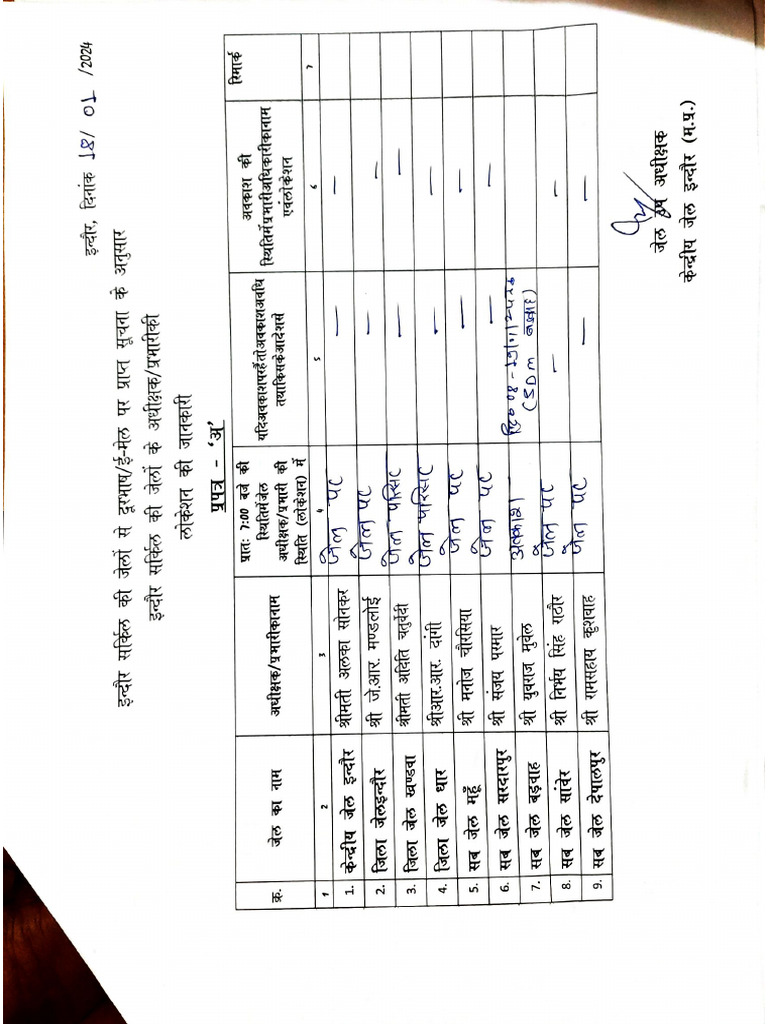 इन्दौर, दिनांक 18/ 01 /2024
इन्दौर सर्किल की जेलों से दूरभाष/ई-मेल पर प्राप्त सूचना के अनुसार
इन्दौर सर्किल की जेलों के अधीक्षक/प्रभारीकी
लोकेशन की जानकारी
प्रपत्र - 'अ'
क्र. जेल का नाम अधीक्षक/प्रभारीकानाम प्रातः 7:00 बजे की स्थितिमेंजेल अधीक्षक/प्रभारी की स्थिति (लोकेशन) में यदिअवकाशपरहैंतोअवकाशअवधि तथाकिसकेआदेशसे अवकाश की स्थितिमेंप्रभारीअधिकारीकानाम एवंलोकेशन रिमार्क
1 2 3 4 5 6 7
1. केन्द्रीय जेल इन्दौर श्रीमती अलका सोनकर जेल पर — —
2. जिला जेलइन्दौर श्री जे.आर. मण्डलोई जेल पर — —
3. जिला जेल खण्डवा श्रीमती अदिति चतुर्वेदी जेल परिसर — —
4. जिला जेल धार श्रीआर.आर. दांगी जेल परिसर — —
5. सब जेल महूँ श्री मनोज चौरसिया जेल पर — —
6. सब जेल सरदारपुर श्री संजय परमार जेल पर — —
7. सब जेल बड़वाह श्री युवराज मुवेल अवकाश (SDM बड़वाह)
8. सब जेल सांवेर श्री निर्भय सिंह राठौर जेल पर — —
9. सब जेल देपालपुर श्री रामसहाय कुशवाह जेल पर — —
जेल उप अधीक्षक
केन्द्रीय जेल इन्दौर (म.प्र.)